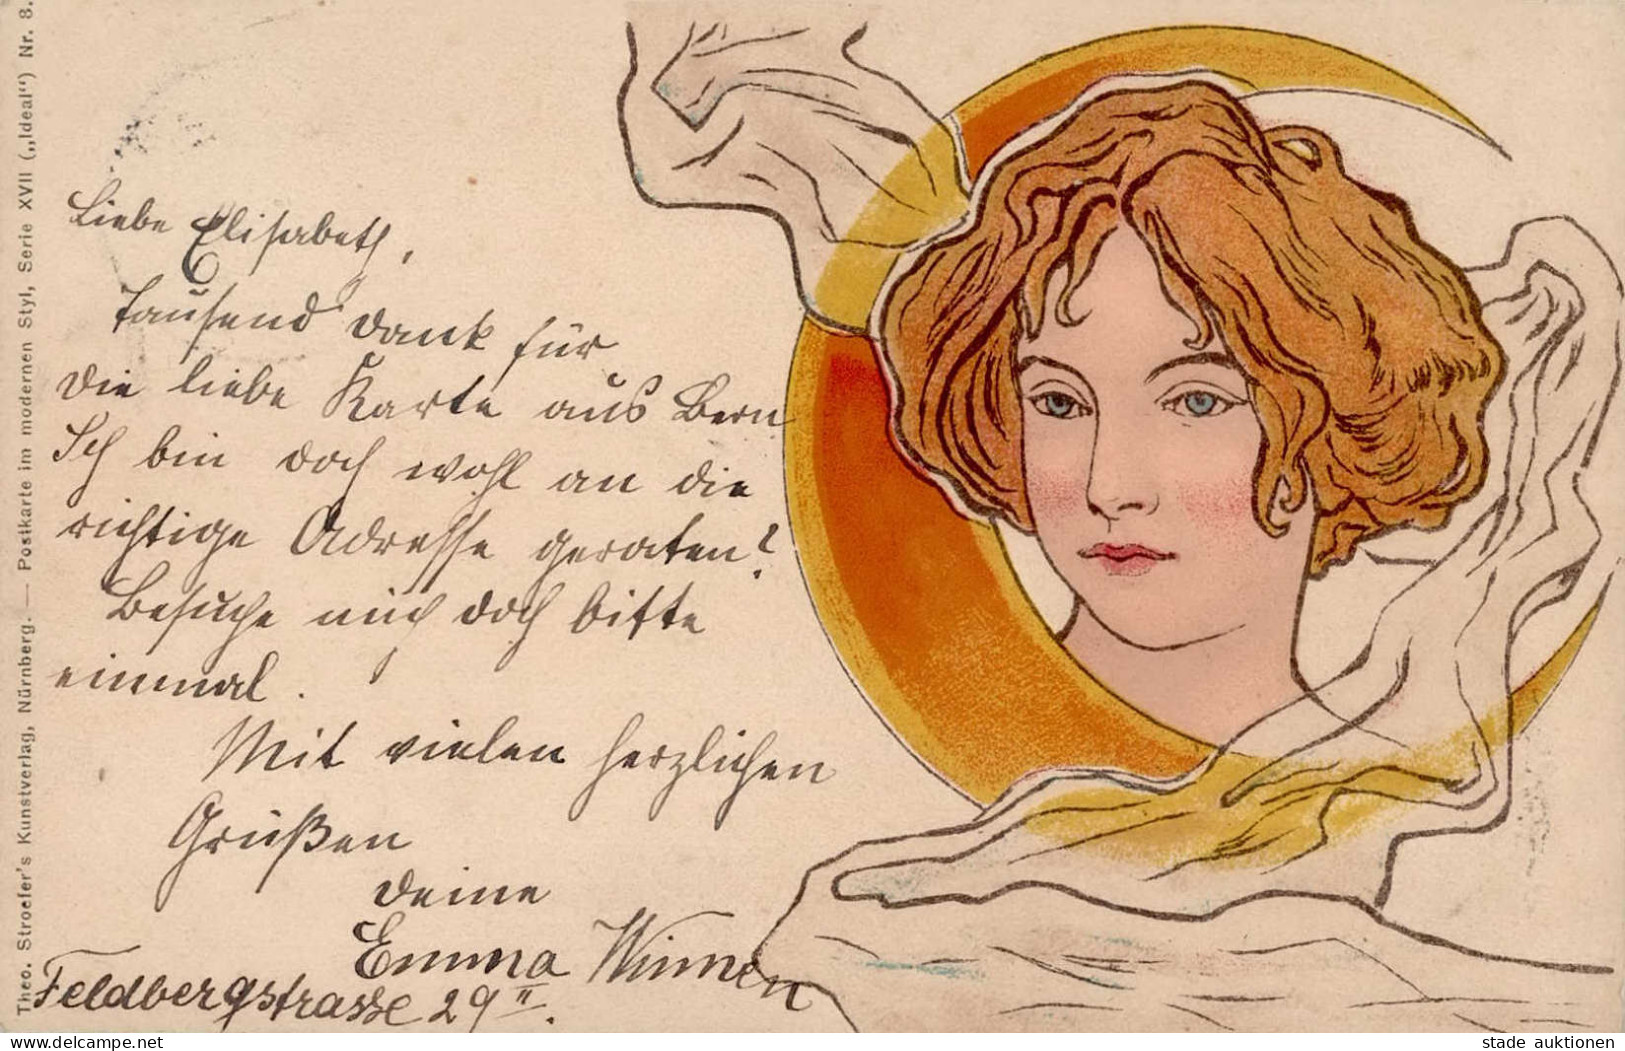 Theo. Stroefer's Kunstverlag, Nürnberg. — Postkarte im modernen Styl, Serie XVII („Ideal“) Nr. 8.
Liebe Elisabeth,
Tausend Dank für
die liebe Karte aus Bern
Ich bin doch wohl an die
richtige Adresse geraten?
Besuche mich doch bitte
einmal.
Mit vielen herzlichen
Grüßen
deine
Emma Winnen
Feldbergstrasse 29 II.
www.delcampe.net
stade auktionen